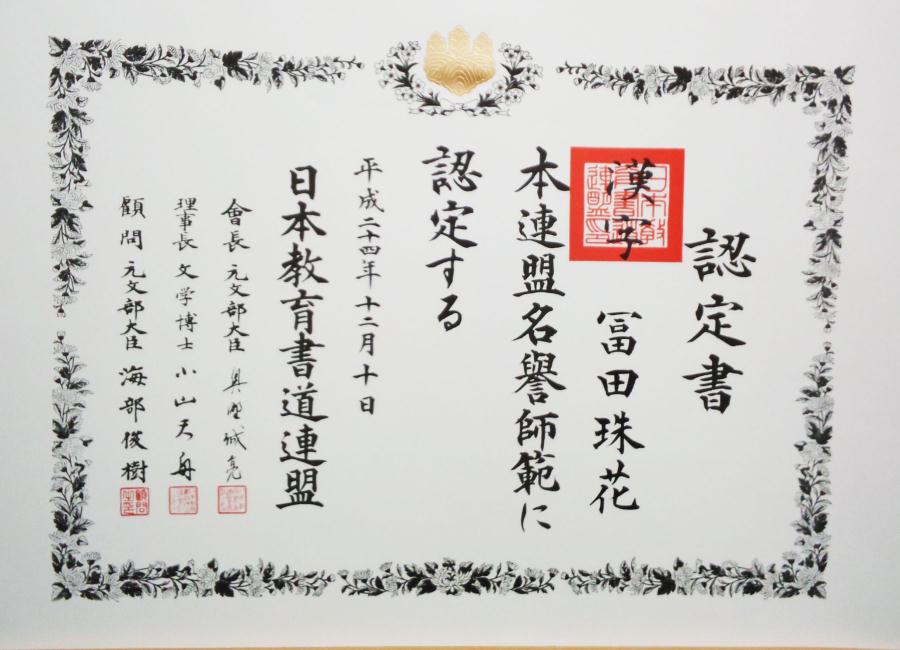 認定書
漢字 冨田珠花
本連盟名誉師範に
認定する
平成二十四年十二月十日
日本教育書道連盟
會長 元文部大臣 奥野誠亮
理事長 文学博士 小山天舟
顧問 元文部大臣 海部俊樹